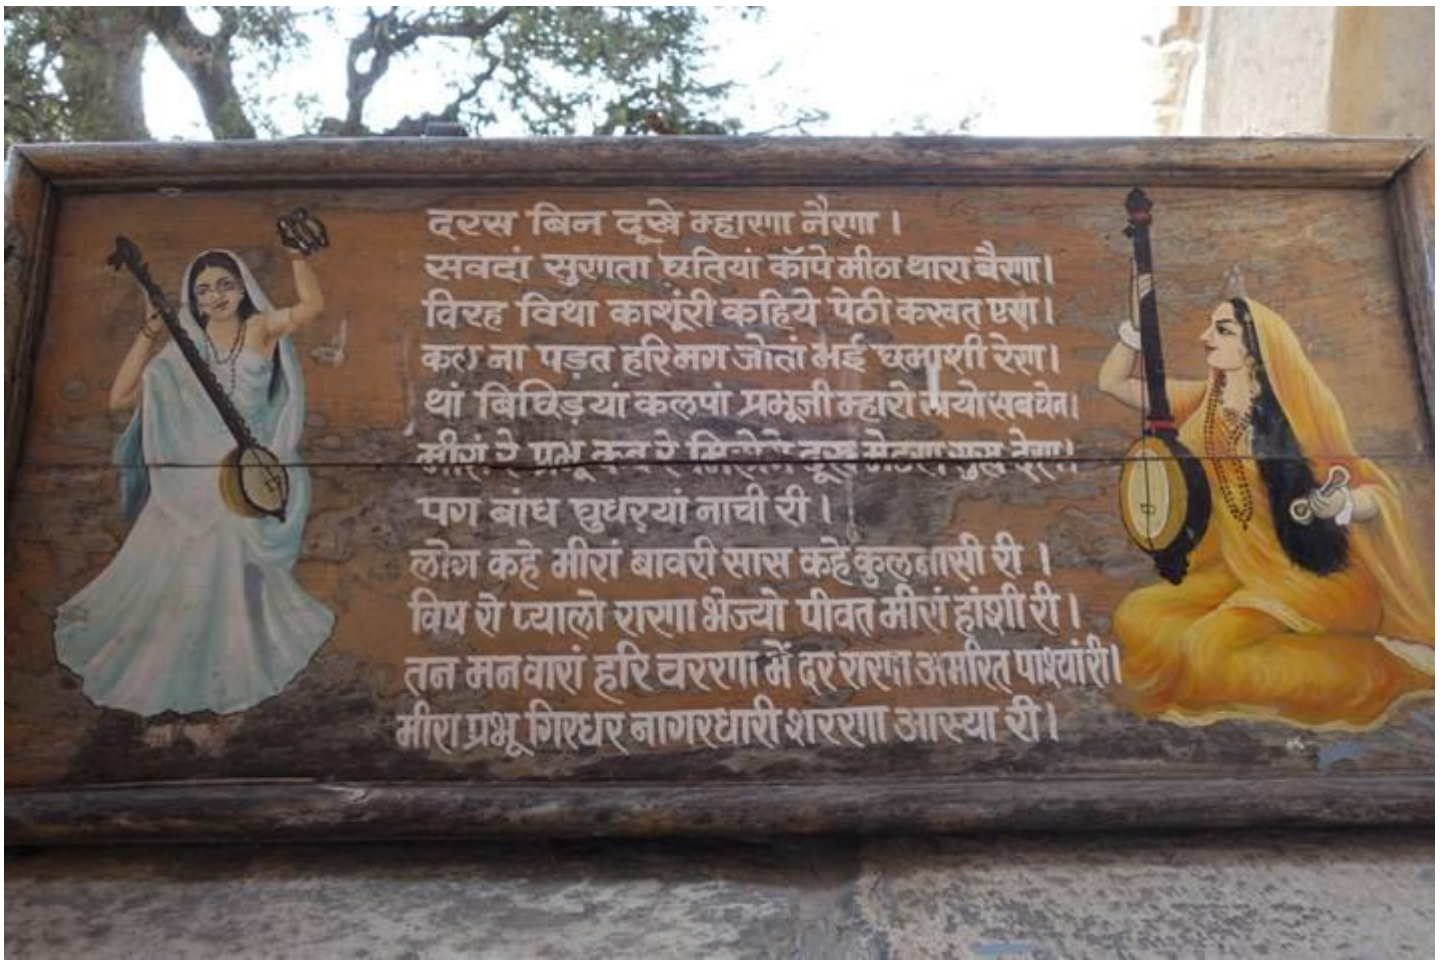 दरस बिन दूखे म्हारणा नैरणा ।
सवदां सुणता छतियां काँपे मीठा थारा बैणा।
विरह विथा काशूंरी कहिये पेठी करवत एणा।
कल ना पड़त हरिमग जोतां भई छमाशी रेणा।
थां बिछिड़यां कलपां प्रभूजी म्हारो सबचेन।
मीरां रे प्रभू कब रे दूख मेटणा सुख देणा।
पग बांध घुधर्‌यां नाची री ।
लोग कहे मीरां बावरी सास कहे कुलनासी री ।
विष रो प्यालो रारणा भेज्यो पीवत मीरां हांशी री ।
तन मन वारां हरि चररणा में दररारणा अमरित पाश्यां री।
मीरा प्रभू गिरधर नागरधारी शररणा आस्या री।